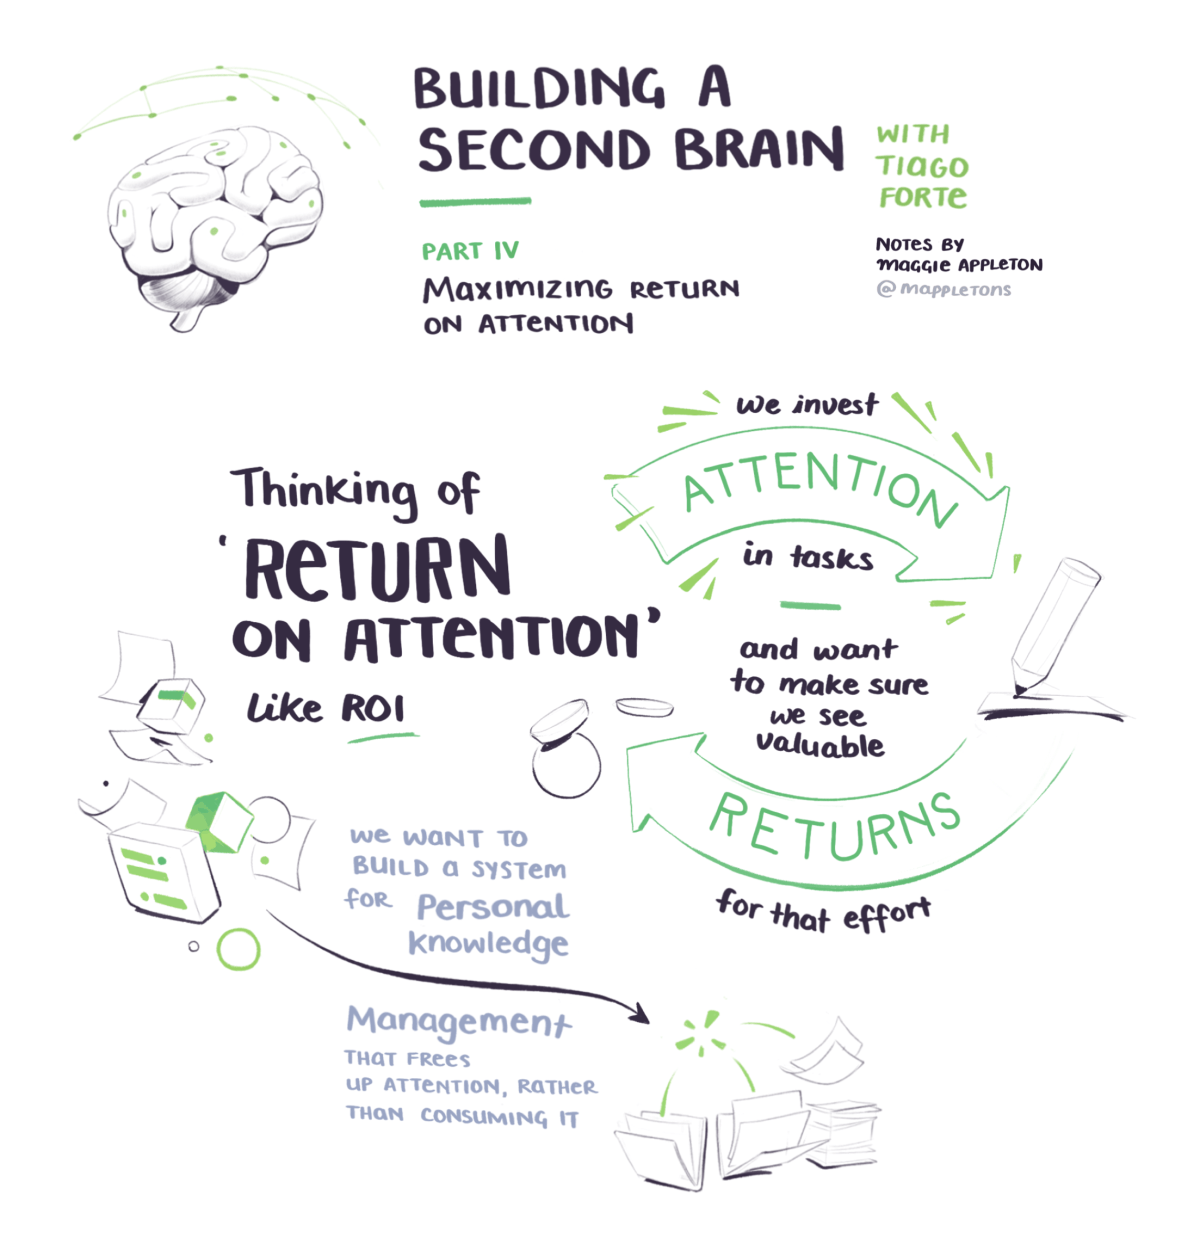 BUILDING A
SECOND BRAIN
WITH
TIAGO
FORTE
PART IV
MAXIMIZING RETURN
ON ATTENTION
NOTES BY
MAGGIE APPLETON
@MAPPLETONS
Thinking of
'RETURN
ON ATTENTION'
like ROI
we invest
ATTENTION
in tasks
and want
to make sure
we see
valuable
RETURNS
for that effort
WE WANT TO
BUILD A SYSTEM
FOR Personal
Knowledge
Management
THAT FREES
UP ATTENTION, RATHER
THAN CONSUMING IT